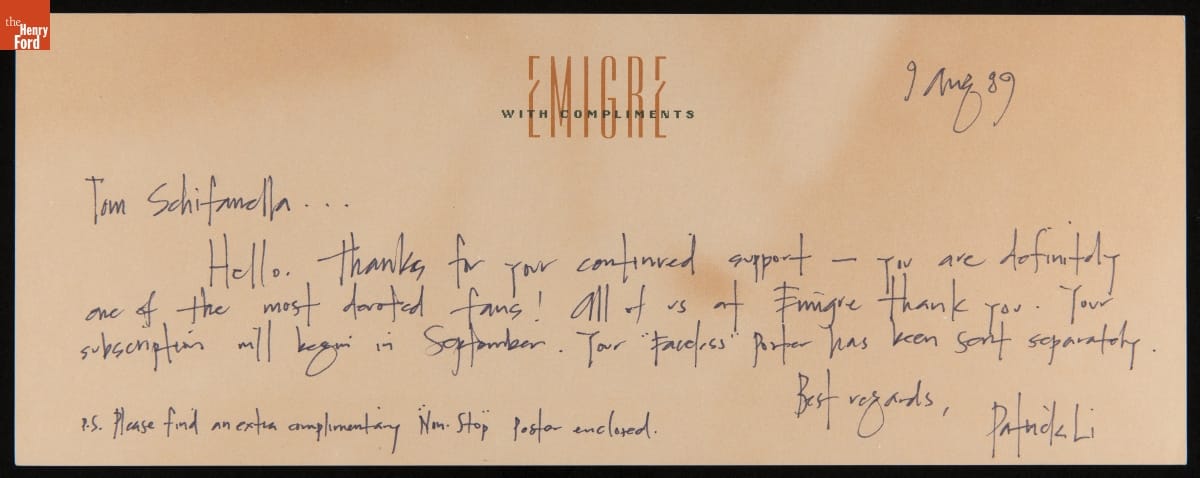 the Henry Ford
EMIGRE
WITH COMPLIMENTS
9 Aug 89
Tom Schifanella...
Hello. Thanks for your continued support – you are definitely
one of the most devoted fans! All of us at Emigre thank you. Your
subscription will begin in September. Your "Faceless" Poster has been sent separately.
Best regards,
Patrick Li
P.S. Please find an extra complimentary "Non-Stop" Poster enclosed.